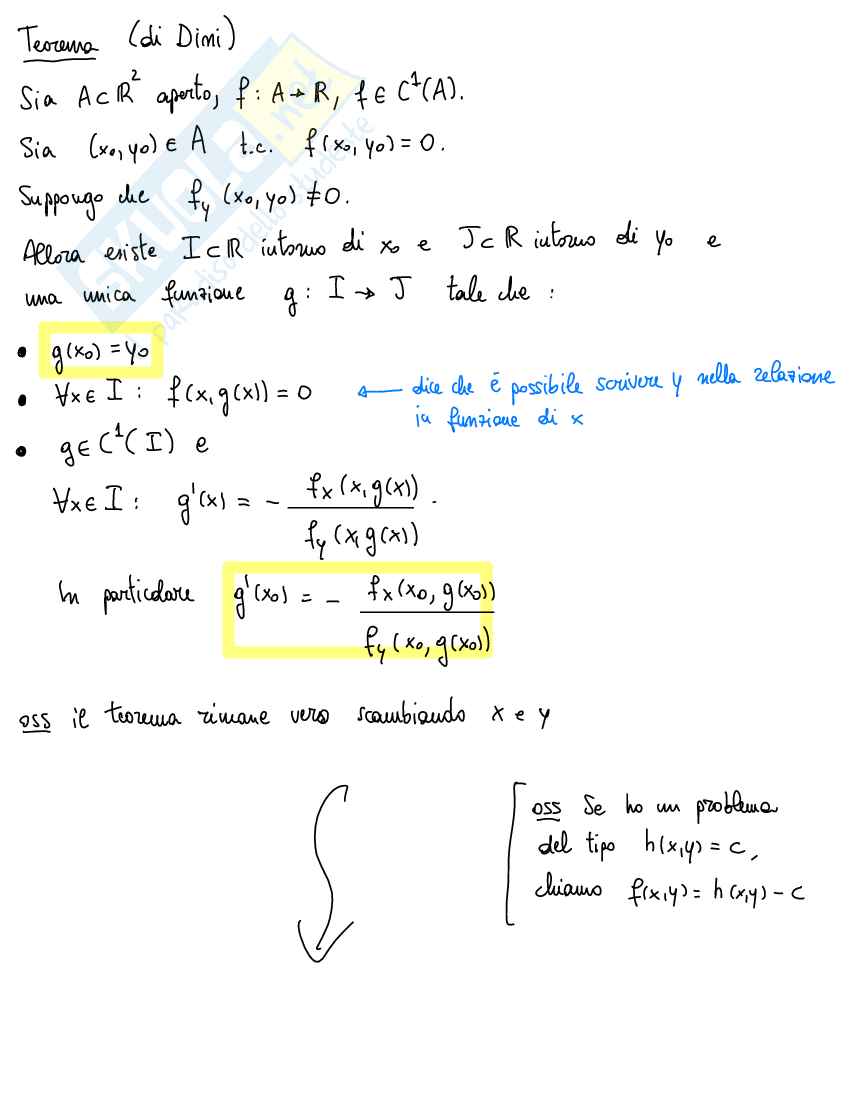 Teorema (di Dini)
Sia A⊂ℝ² aperto, f: A→ℝ, f∈C¹(A).
Sia (x₀,y₀)∈A t.c. f(x₀,y₀)=0.
Suppongo che f_y (x₀,y₀)≠0.
Allora esiste I⊂ℝ intorno di x₀ e J⊂ℝ intorno di y₀ e
una unica funzione g: I→J tale che:
• g(x₀)=y₀
• ∀x∈I: f(x,g(x))=0 ← dice che é possibile scrivere y nella relazione
in funzione di x
• g∈C¹(I) e
∀x∈I: g'(x) = - f_x(x,g(x)) / f_y(x,g(x)).
In particolare g'(x₀) = - f_x(x₀,g(x₀)) / f_y(x₀,g(x₀))
oss il teorema rimane vero scambiando x e y
oss Se ho un problema
del tipo h(x,y)=c,
chiamo f(x,y)=h(x,y)-c
SKUOLA.net
il paradiso dello studente